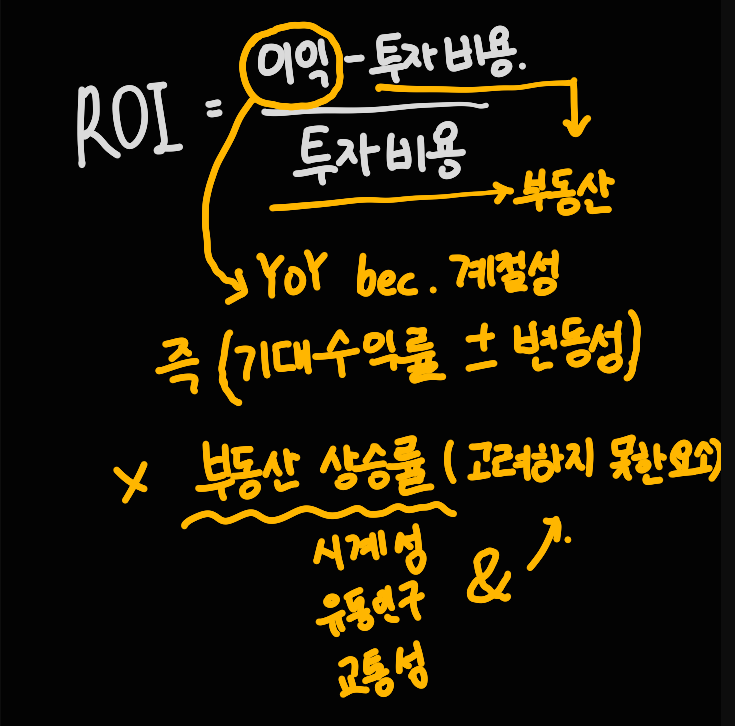 ROI = 이익 - 투자비용.
투자비용
부동산
YoY bec. 계절성
즉 (기대수익률 ± 변동성)
× 부동산 상승률 (고려하지 못한요소)
시계성
유동인구
교통성
&